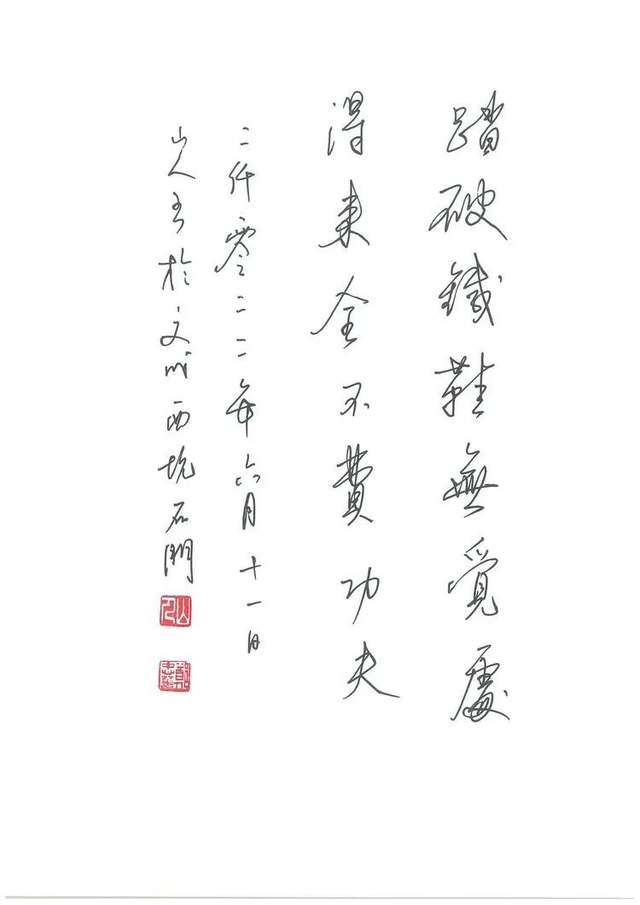 踏破鐵鞋無覓處
得来全不費功夫
二仟零二二年六月十一日
山人書於文成西坑石門
山人